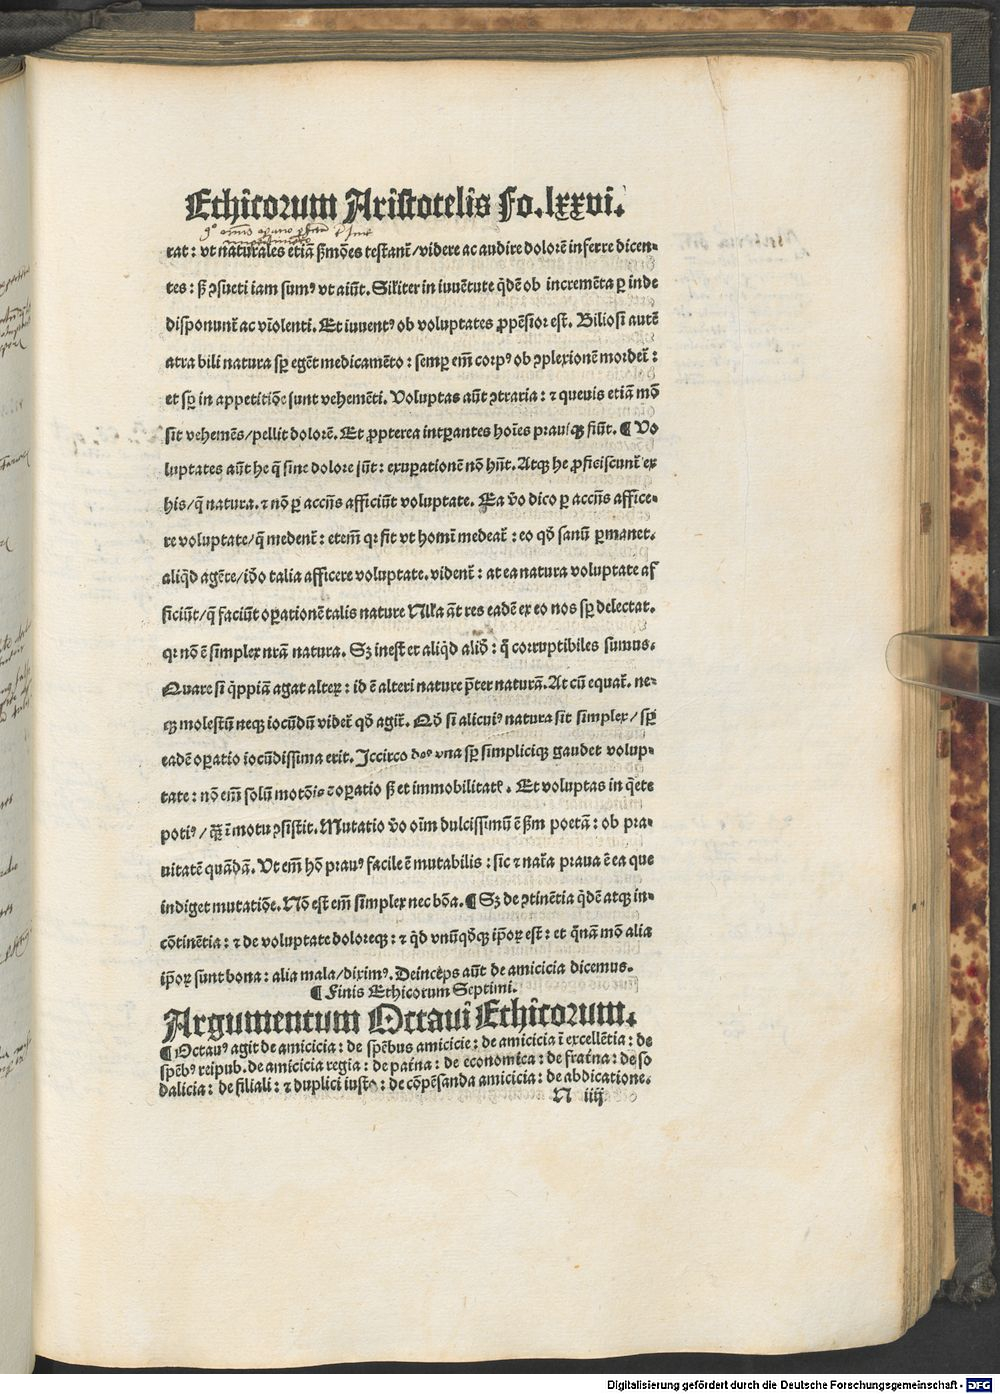 Ethicorum Aristotelis Fo. lxxvi.
rat: vt naturales etiā ẜmōes testant᷑/videre ac audire dolorē inferre dicen-
tes: ẜ ꝯsueti iam sumꝰ vt aiūt. Siliter in iuuētute q̄dē ob incremēta ꝑ inde
disponunt᷑ ac violenti. Et iuuentꝰ ob voluptates ꝓpēsior est. Biliosi autē
atra bili natura sꝑ egēt medicamēto: semꝑ em̄ corpꝰ ob ꝯplexionē mordet᷑:
et sꝑ in appetitiōe sunt vehemēti. Voluptas aūt ꝯtraria: ⁊ queuis etiā mō
sit vehemēs/pellit dolorē. Et ꝓpterea intꝑantes hoīes prauiqꝫ fiūt. ¶ Vo
luptates aūt he q̄ sine dolore sūt: exuꝑationē nō hn̄t. Atqꝫ he ꝓficiscunt᷑ ex
his/q̄ natura. ⁊ nō ꝑ accn̄s afficiūt voluptate. Ea v̄o dico ꝑ accn̄s affice-
re voluptate/q̄ medent᷑: etem̄ qꝛ fit vt homī medeat᷑: eo qð sanū ꝑmanet.
aliqd̄ agēte/iđo talia afficere voluptate. vident᷑: at ea natura voluptate af
ficiūt/q̄ faciūt oꝑationē talis nature Nl̄la āt res eadē ex eo nos sꝑ delectat.
qꝛ nō ē simplex nr̄a natura. Sꝫ inest et aliqd̄ aliđ: q̄ corruptibiles sumus.
Quare si q̄ppiā agat alteꝝ: id ē alteri nature p̄ter naturā. At cū equat᷑. ne-
qꝫ molestū neqꝫ iocūdū videt᷑ qð agit᷑. Qð si alicuiꝰ natura sit simplex/sꝑ
eadē oꝑatio iocūdissima erit. Iccirco deꝰ vna sꝑ simpliciqꝫ gaudet volup-
tate: nō em̄ solū motōis ē oꝑatio ẜ et immobilitatꝭ. Et voluptas in q̄ete
potiꝰ/qꝫ̄ ī motu ꝯsistit. Mutatio v̄o oīm dulcissimū ē ẜm poetā: ob pra-
uitatē quādā. Vt em̄ hō prauꝰ facile ē mutabilis: sic ⁊ nat᷑a praua ē ea que
indiget mutatiōe. Nō est em̄ simplex nec bōa. ¶ Sꝫ de ꝯtinētia q̄dē atqꝫ in-
cōtinētia: ⁊ de voluptate doloreqꝫ: ⁊ qd̄ vnūqð̄qꝫ ip̄oꝝ est: et q̄nā mō alia
ip̄oꝝ sunt bona: alia mala/diximꝰ. Deinceps aūt de amicicia dicemus.
¶ Finis Ethicorum Septimi.
Argumentum Octaui Ethicorum.
¶ Octauꝰ agit de amicicia: de spēbus amicicie: de amicicia ī excellētia: de
spēbꝰ reipub. de amicicia regia: de pat᷑na: de economica: de frat᷑na: de so
dalicia: de filiali: ⁊ duplici iusto: de cōpēsanda amicicia: de abdicatione.
N iiij
Digitalisierung gefördert durch die Deutsche Forschungsgemeinschaft - DFG